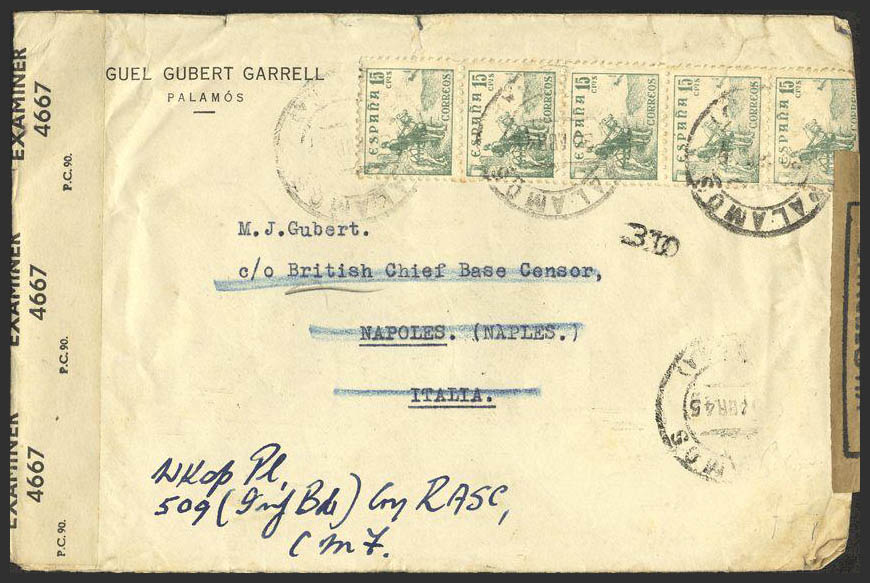 EXAMINER 4667
P.C. 90.
EXAMINER 4667
P.C. 90.
EXAMINER 4667
P.C. 90.
GUEL GUBERT GARRELL
PALAMÓS
ESPAÑA 15 CTS CORREOS
ESPAÑA 15 CTS CORREOS
ESPAÑA 15 CTS CORREOS
ESPAÑA 15 CTS CORREOS
ESPAÑA 15 CTS CORREOS
PALAMOS
310
M.J.Gubert.
c/o British Chief Base Censor,
NAPOLES. (NAPLES.)
ITALIA.
ABR 45
AMOS
Wkop Pl,
509 (Inf Bde) Coy RASC,
C M F.